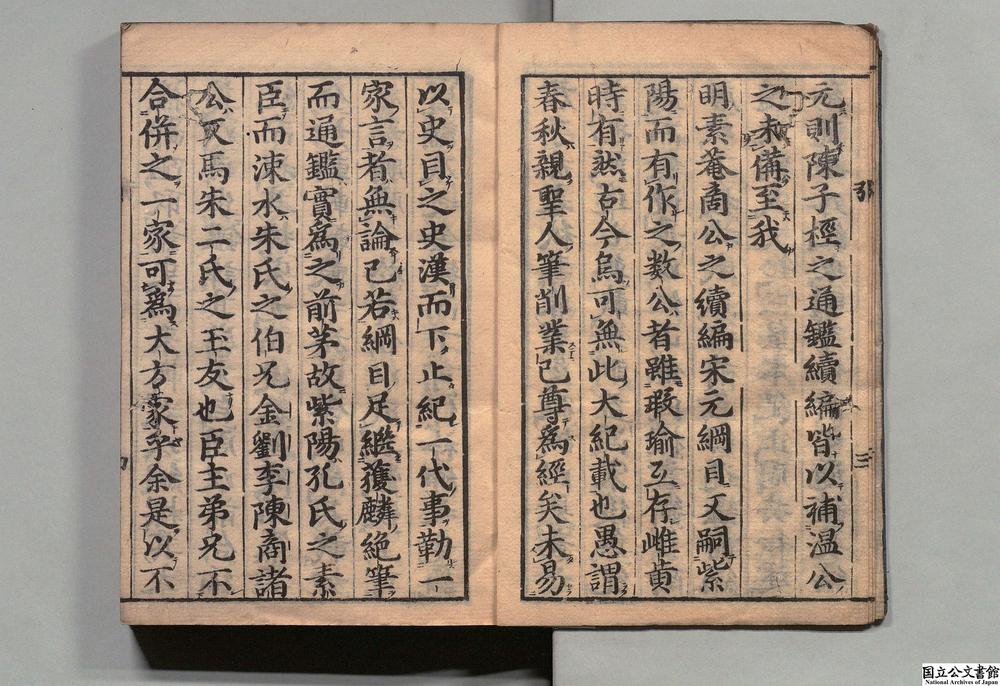 元則陳子桱之通鑑續編皆以補温公
之未備至我
明素菴商公之續編宋元綱目又嗣紫
陽而有作之数公者雖瑕瑜互存雌黄
時有然古今烏可無此大紀載也愚謂
春秋親聖人筆削業已尊爲經矣未易
以史目之史漢而下止紀一代事勒一
家言者無論已若綱目足繼獲麟絶筆
而通鑑實爲之前茅故紫陽孔氏之素
臣而涑水朱氏之伯兄金劉李陳商諸
公又馬朱二氏之王友也臣主弟兄不
合併之一家可爲大方家乎余是以不
三
国立公文書館
National Archives of Japan